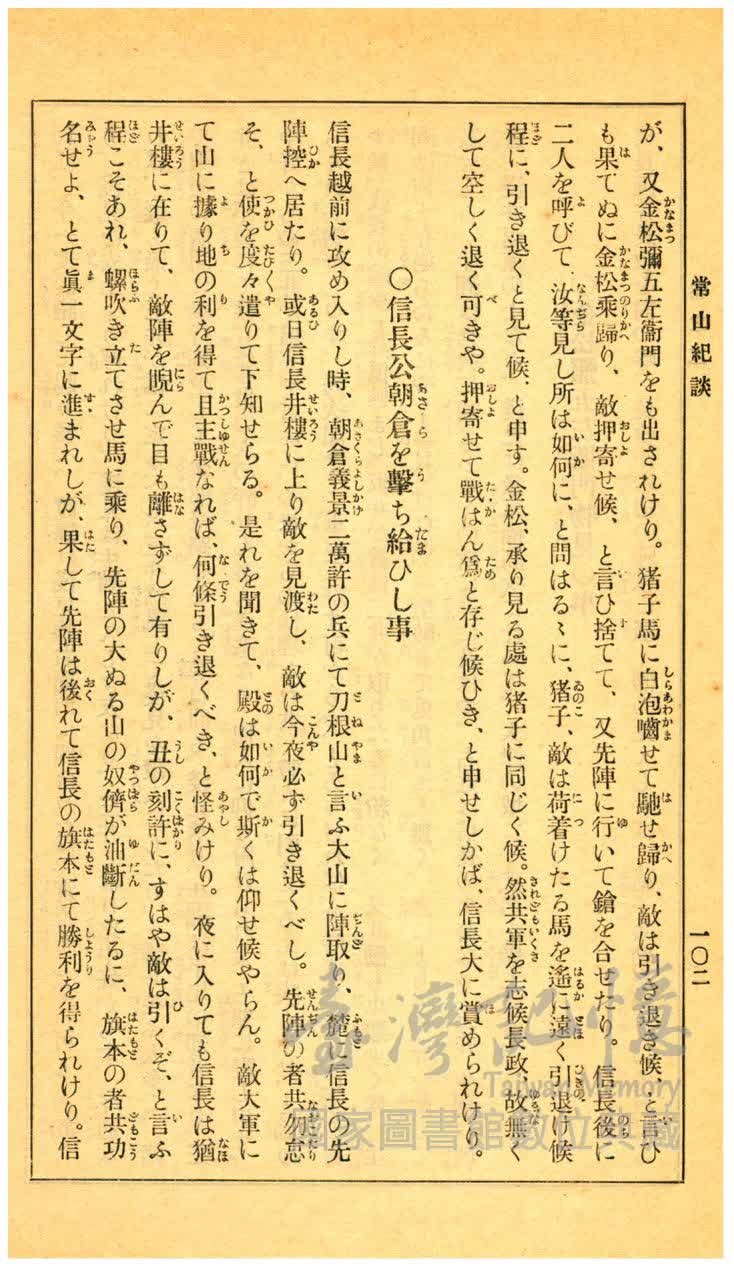 常山紀談
一〇二
が、又金松彌五左衞門をも出されけり。猪子馬に白泡嚙せて馳せ歸り、敵は引き退き候、と言ひ
も果てぬに金松乘歸り、敵押寄せ候、と言ひ捨てて、又先陣に行いて鎗を合せたり。信長後に
二人を呼びて、汝等見し所は如何に、と問はるゝに、猪子、敵は荷着けたる馬を遙に遠く引退け候
程に、引き退くと見て候、と申す。金松、承り見る處は猪子に同じく候。然共軍を志候長政、故無く
して空しく退く可きや。押寄せて戰はん爲と存じ候ひき、と申せしかば、信長大に賞められけり。
〇信長公朝倉を擊ち給ひし事
信長越前に攻め入りし時、朝倉義景二萬許の兵にて刀根山と言ふ大山に陣取り、麓に信長の先
陣控へ居たり。或日信長井樓に上り敵を見渡し、敵は今夜必ず引き退くべし。先陣の者共勿怠
そ、と使を度々遣りて下知せらる。是れを聞きて、殿は如何で斯くは仰せ候やらん。敵大軍に
て山に據り地の利を得て且主戰なれば、何條引き退くべき、と怪みけり。夜に入りても信長は猶
井樓に在りて、敵陣を睨んで目も離さずして有りしが、丑の刻許に、すはや敵は引くぞ、と言ふ
程こそあれ、螺吹き立てさせ馬に乘り、先陣の大ぬる山の奴儕が油斷したるに、旗本の者共功
名せよ、とて眞一文字に進まれしが、果して先陣は後れて信長の旗本にて勝利を得られけり。信
臺灣記憶
Taiwan Memory
國家圖書館數位典藏